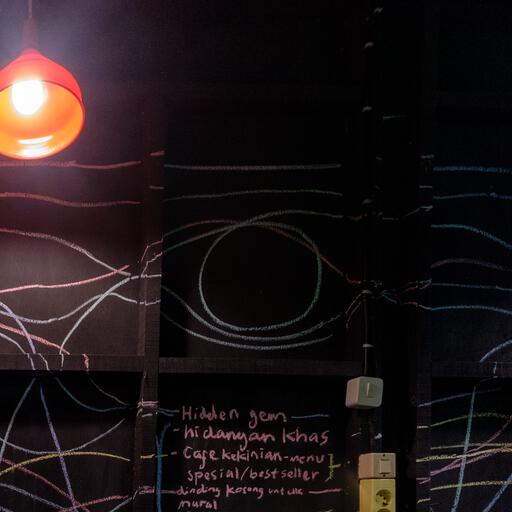 - Hidden gem
- hidangan khas
- Cafe kekinian-menu
spesial/bestseller
dinding kosong untuk
mural